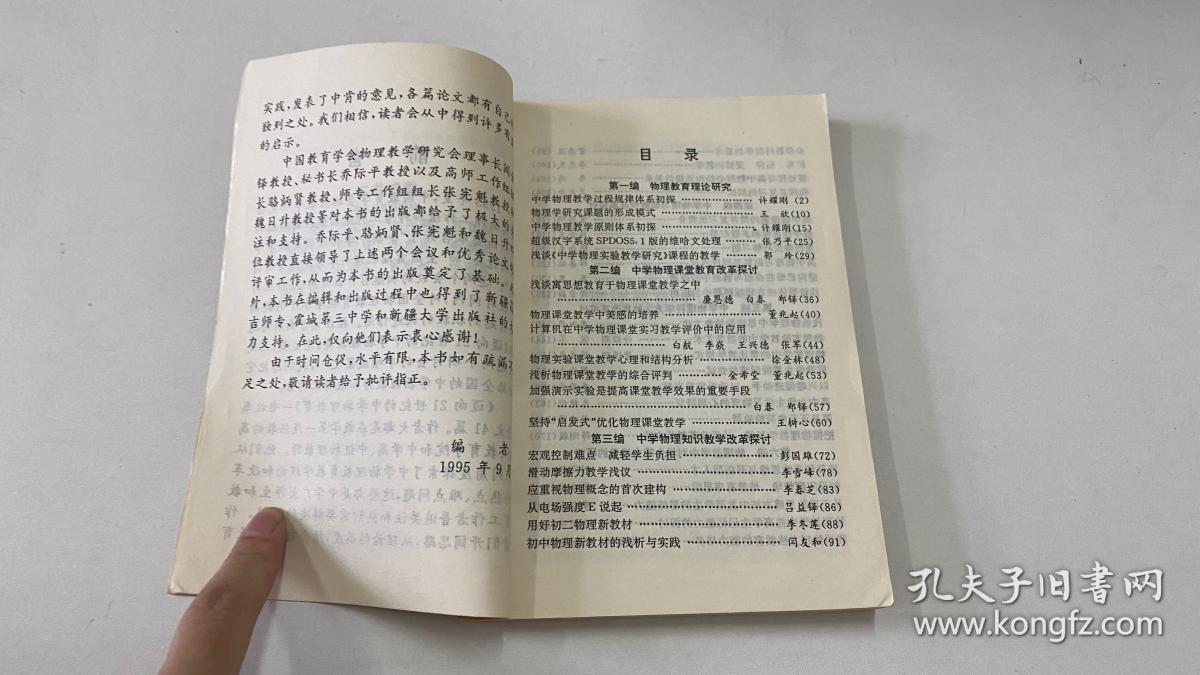 实践，发表了中肯的意见，各篇论文都有自己
独到之处。我们相信，读者会从中得到许多有
的启示。
中国教育学会物理教学研究会理事长阎
铎教授、秘书长乔际平教授以及高师工作组
长骆炳贤教授、师专工作组组长张宪魁教授
魏日升教授等对本书的出版都给予了极大的
注和支持。乔际平、骆炳贤、张宪魁和魏日升
位教授直接领导了上述两个会议和优秀论文
评审工作，从而为本书的出版奠定了基础。
外，本书在编辑和出版过程中也得到了新疆
吉师专、霍城第三中学和新疆大学出版社的
力支持。在此，仅向他们表示衷心感谢！
由于时间仓促，水平有限，本书如有疏漏
足之处，敬请读者给予批评指正。
编 者
1995 年 9 月
目 录
第一编 物理教育理论研究
中学物理教学过程规律体系初探 ……………… 许耀刚(2)
物理学研究课题的形成模式 ……………… 王 欣(10)
中学物理教学原则体系初探 ……………… 许耀刚(15)
超级汉字系统 SPDOS5.1 版的维哈文处理 ……… 张乃平(25)
浅谈《中学物理实验教学研究》课程的教学 ……… 郭 玲(29)
第二编 中学物理课堂教育改革探讨
浅谈寓思想教育于物理课堂教学之中
……………… 廉恩德 白春 郑铎(36)
物理课堂教学中美感的培养 ……………… 董兆起(40)
计算机在中学物理课堂实习教学评价中的应用
……………… 白航 李焱 王兴德 张军(44)
物理实验课堂教学心理和结构分析 ……………… 徐金林(48)
浅析物理课堂教学的综合评判 ……… 金希堂 董兆起(53)
加强演示实验是提高课堂教学效果的重要手段
……………… 白春 郑铎(57)
坚持“启发式”优化物理课堂教学 ……………… 王树心(60)
第三编 中学物理知识教学改革探讨
宏观控制难点 减轻学生负担 ……………… 彭国雄(72)
滑动摩擦力教学浅议 ……………… 李雪峰(78)
应重视物理概念的首次建构 ……………… 李春芝(83)
从电场强度 E 说起 ……………… 吕益铎(86)
用好初二物理新教材 ……………… 李冬莲(88)
初中物理新教材的浅析与实践 ……………… 闫友和(91)
孔夫子旧书网
www.kongfz.com